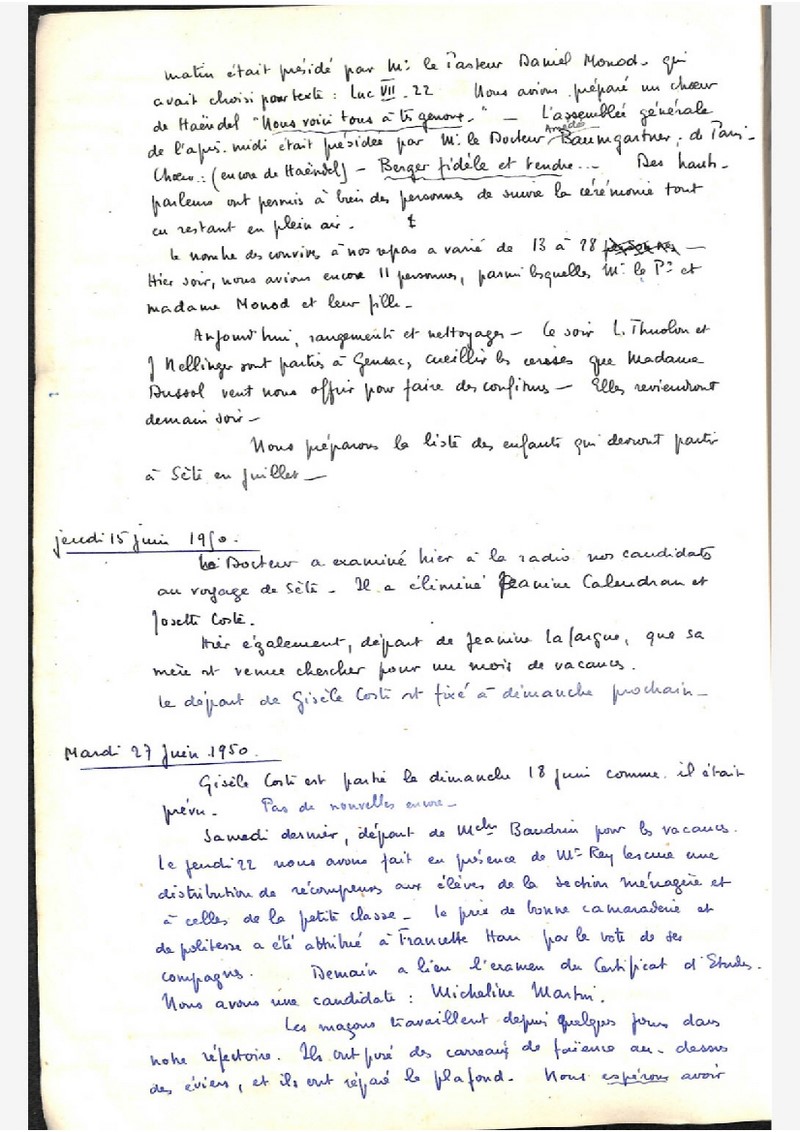 matin était présidé par Mr. le Pasteur Daniel Monod - qui
avait choisi pour texte : Luc VII. 22 Nous avions préparé un chœur
de Haëndel "Nous voici tous à tes genoux." - L'assemblée générale
de l'après-midi était présidée par Mr. le Docteur Amédée Baumgartner, de Paris -
Chœur : (encore de Haëndel) - Berger fidèle et tendre... Des hauts-
parleurs ont permis à bien des personnes de suivre la cérémonie tout
en restant en plein air. t
Le nombre des convives à nos repas a varié de 13 à 28 -
Hier soir, nous avions encore 11 personnes, parmi lesquelles Mr. le Pr et
madame Monod et leur fille -
Aujourd'hui, rangements et nettoyages - Ce soir L. et
J Nellinger sont parties à Gensac, cueillir les cerises que Madame
Dussol veut nous offrir pour faire des confitures - Elles reviendront
demain soir -
Nous préparons la liste des enfants qui devront partir
à Sète en juillet -
jeudi 15 juin 1950.
Le Docteur a examiné hier à la radio nos candidats
au voyage de Sète - Il a éliminé Jeanine Calendran et
Josette Coste.
Hier également, départ de Jeanine Lafargue, que sa
mère est venue chercher pour un mois de vacances.
Le départ de Gisèle Costi est fixé à dimanche prochain -
Mardi 27 Juin 1950.
Gisèle Costi est partie le dimanche 18 juin comme il était
prévu - Pas de nouvelles encore -
Samedi dernier, départ de Melle Baudrin pour les vacances.
Le jeudi 22 nous avons fait en présence de Mr Rey Lescure une
distribution de récompenses aux élèves de la section ménagère et
à celles de la petite classe - le prix de bonne camaraderie et
de politesse a été attribué à Francette Han par le vote de ses
compagnes. Demain a lieu l'examen du Certificat d'Etudes.
Nous avons une candidate : Micheline Martin.
Les maçons travaillent depuis quelques jours dans
notre réfectoire. Ils ont posé des carreaux de faïence au-dessus
des éviers, et ils ont réparé le plafond. Nous espérons avoir